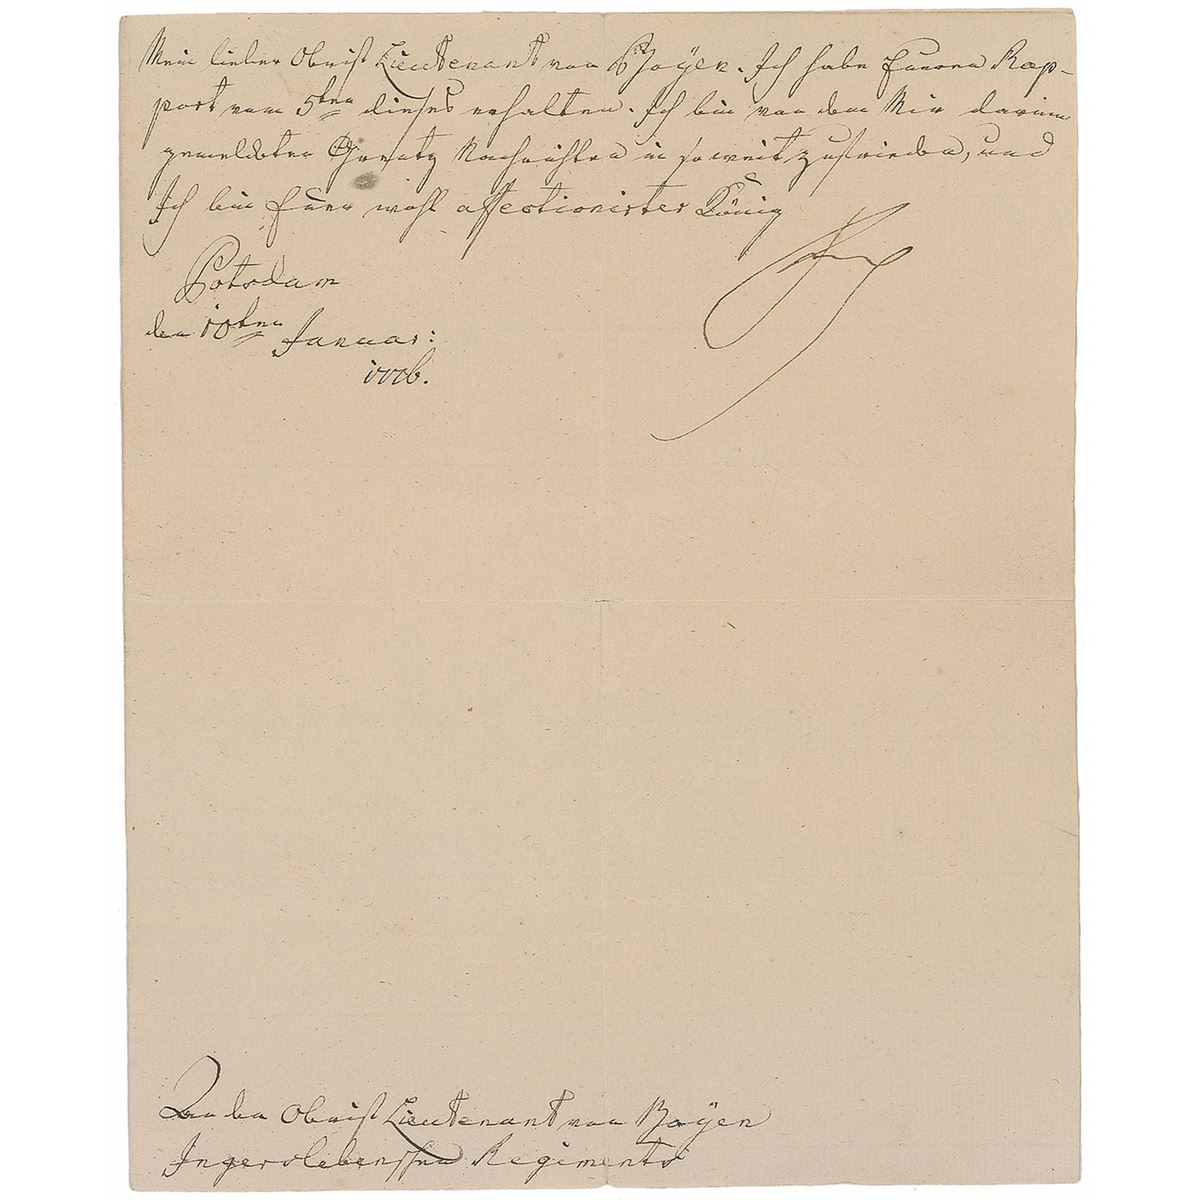 Mein lieber Obrist Lieutenant von Boÿen. Ich habe Eueren Rap-
port vom 5ten dieses erhalten. Ich bin von den Mir darinn
gemeldeten Grentz Nachrichten in soweit zufrieden, und
Ich bin Euer wohl affectionirter König
Potsdam
den 10ten Januar:
An den Obrist Lieutenant von Boÿen
Ingerslebenschen Regiments